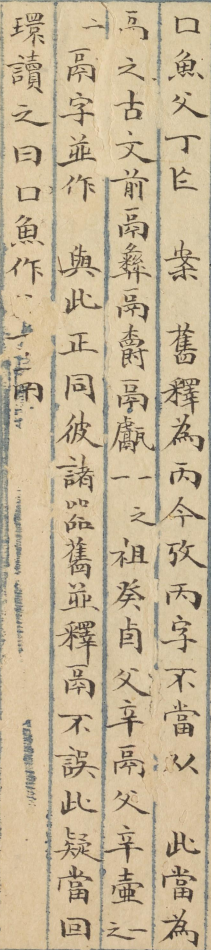 口魚父丁𠤎 案 舊釋為丙今攷丙字不當从 此當為
鬲之古文前鬲彝鬲爵鬲甗一一之祖癸卣父辛鬲父辛壺一之
二鬲字並作 與此正同彼諸器舊並釋鬲不誤此疑當回
環讀之曰口魚作